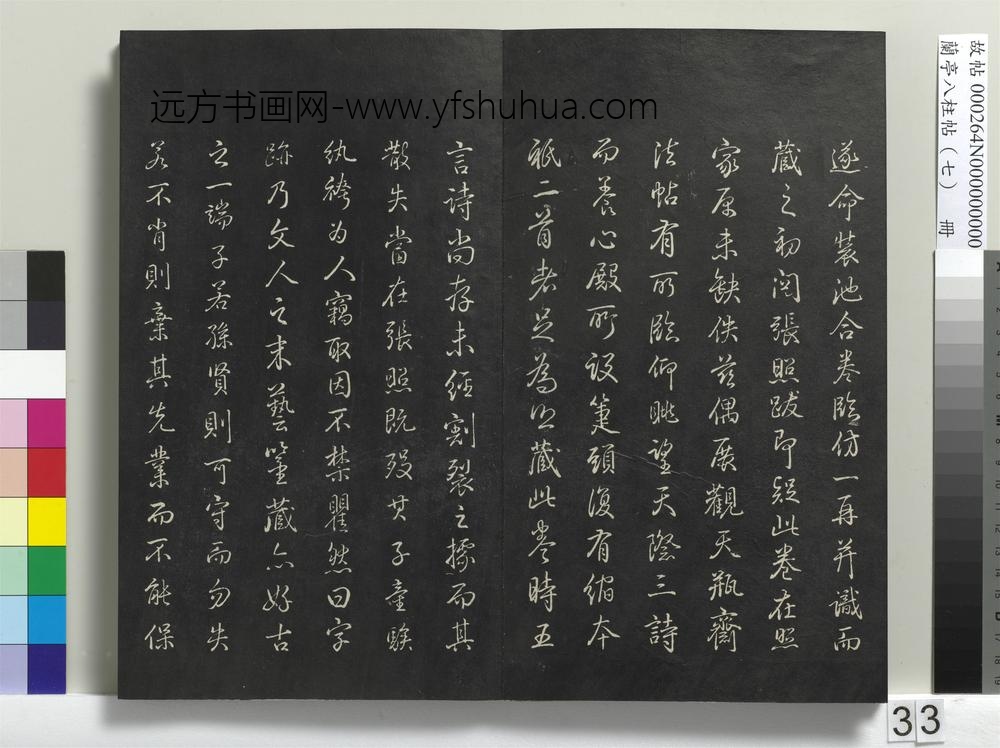 远方书画网-www.yfshuhua.com
遂命裝池合卷臨仿一再并識而
藏之初閱張照跋即疑此卷在照
家原未缺佚茲偶展觀天瓶齋
法帖有所臨仰眺望天際三詩
而養心殿所設筆頭復有縮本
祇二首者足為照藏此卷時五
言詩尚存未經割裂之據而其
散失當在張照既歿其子童騃
紈袴為人竊取因不禁瞿然曰字
跡乃文人之末藝鑒藏亦好古
之一端子若孫賢則可守而勿失
若不肖則棄其先業而不能保
故帖 000264N000000000
蘭亭八柱帖(七) 冊
33